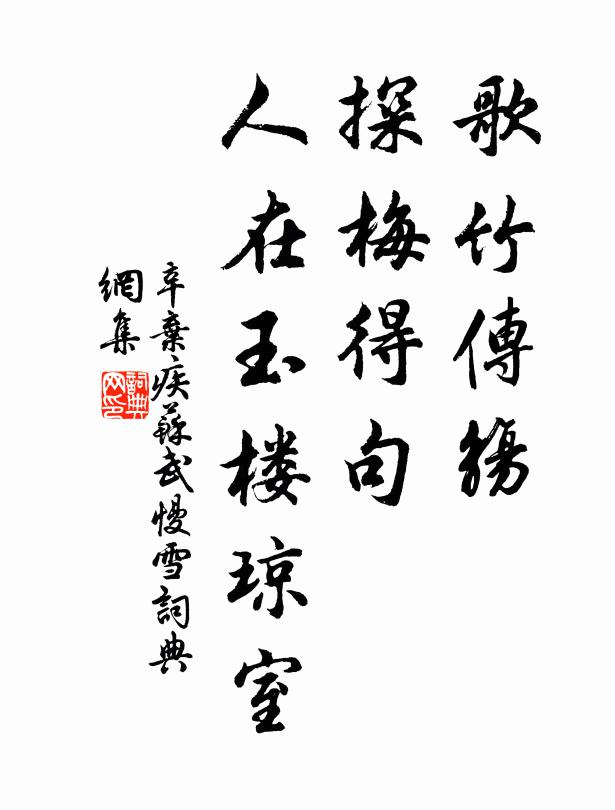 歌竹傳觴
探梅得句
人在玉楼琼室
辛棄疾蘇武慢雪詞典
網集
詞典
网印